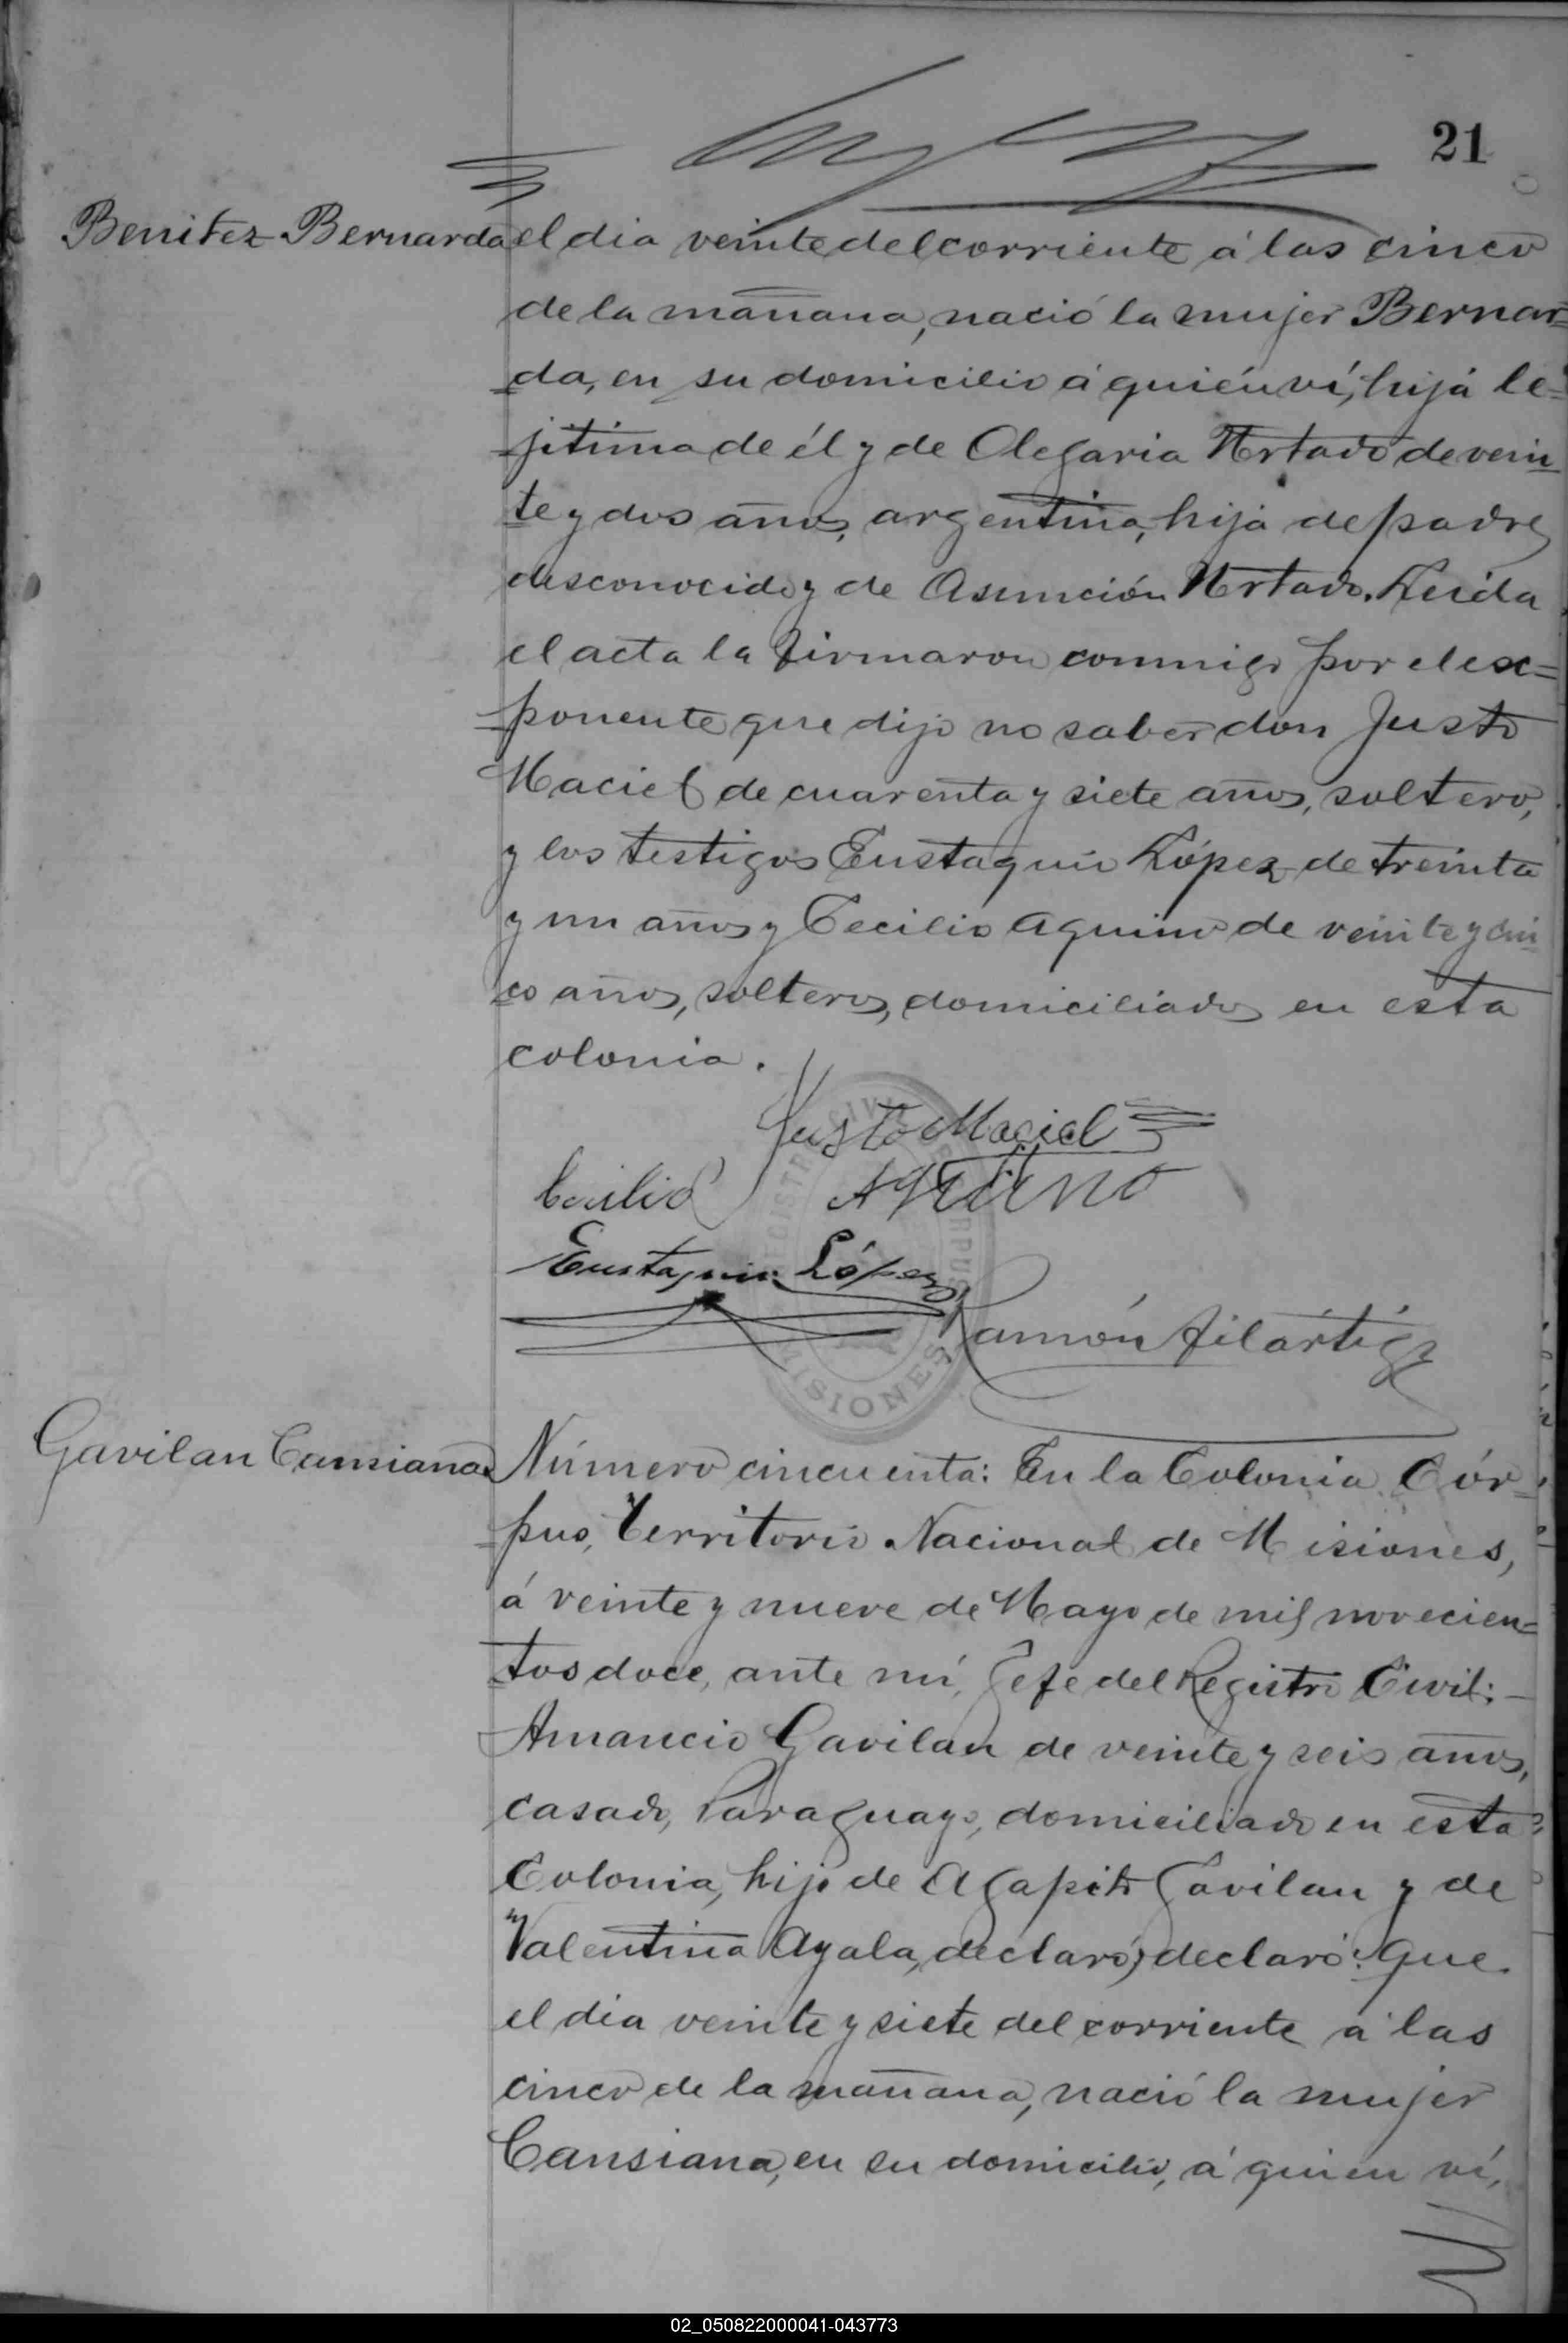 21
Benitez Bernarda
el dia veinte del corriente á las cinco
de la mañana, nació la mujer Bernar=
da, en su domicilio á quién ví, hija le=
jitima de él y de Olegaria Hrtado de vein
te y dos años, argentina, hija de padre
desconocido y de Asunción Hrtado. Leida
el acta la firmaron conmigo por el ex=
ponente que dijo no saber don Justo
Maciel de cuarenta y siete años, soltero,
y los testigos Eustaquio López de treinta
y un años y Cecilio Aquino de veinte y cin
co años, solteros, domiciliados en esta
colonia.
Justo Maciel
Cecilio Aquino
Eustaquio López
Ramón Filártiga
REGISTRO CIVIL CORPUS
MISIONES
Gavilan Cansiana
Número cincuenta: En la Colonia Cór=
pus, Territorio Nacional de Misiones,
á veinte y nueve de Mayo de mil novecien=
tos doce, ante mí, Jefe del Registro Civil:—
Amancio Gavilan de veinte y seis años,
casado, Paraguayo, domiciliado en esta
Colonia, hijo de Agapito Gavilan y de
Valentina Ayala, declaró; declaró: Que
el dia veinte y siete del corriente á las
cinco de la mañana, nació la mujer
Cansiana, en su domicilio, á quien ví,
02_050822000041-043773